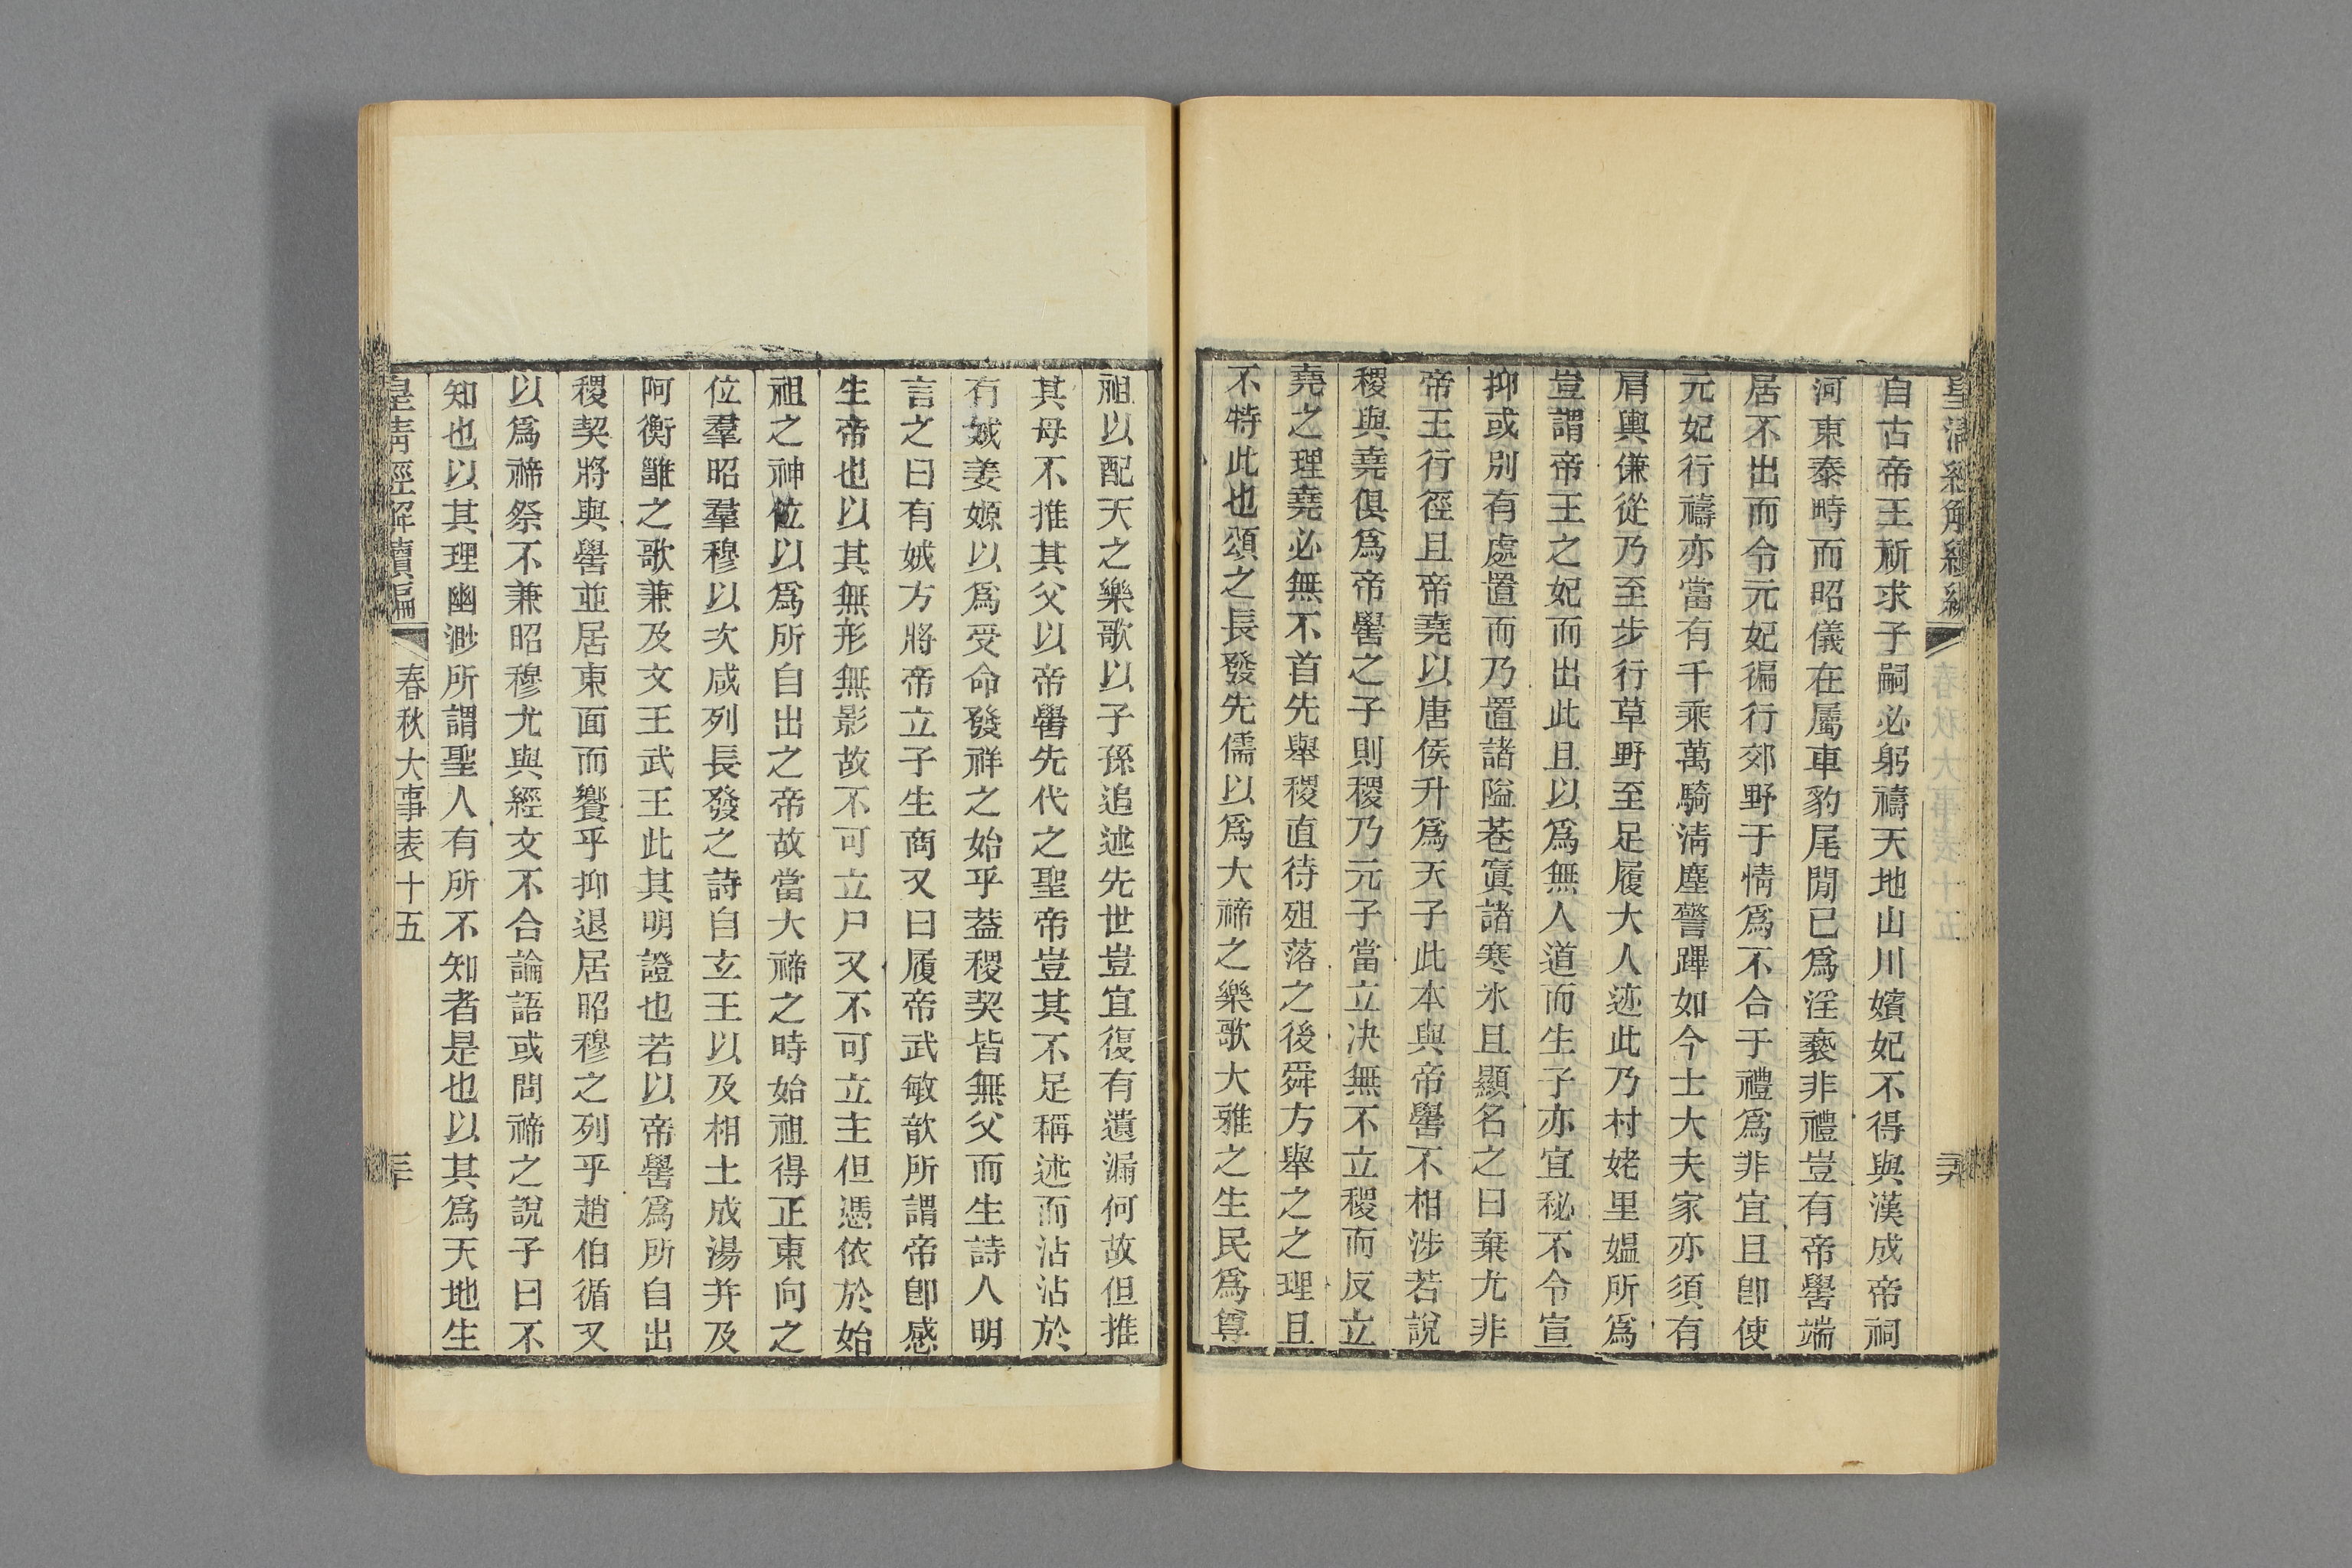 皇清經解續編
春秋大事表十五
自古帝王祈求子嗣必躬禱天地山川嬪妃不得與漢成帝祠
河東泰畤而昭儀在屬車豹尾閒已爲淫褻非禮豈有帝嚳端
居不出而令元妃徧行郊野于情爲不合于禮爲非宜且卽使
元妃行禱亦當有千乘萬騎淸塵警蹕如今士大夫家亦須有
肩輿傔從乃至步行草野至足履大人迹此乃村姥里媼所爲
豈謂帝王之妃而出此且以爲無人道而生子亦宜秘不令宣
抑或別有處置而乃置諸隘巷寘諸寒冰且顯名之曰棄尤非
帝王行徑且帝堯以唐侯升爲天子此本與帝嚳不相涉若說
稷與堯俱爲帝嚳之子則稷乃元子當立決無不立稷而反立
堯之理堯必無不首先舉稷直待殂落之後舜方舉之之理且
不特此也頌之長發先儒以爲大禘之樂歌大雅之生民爲尊
祖以配天之樂歌以子孫追述先世豈宜復有遺漏何故但推
其母不推其父以帝嚳先代之聖帝豈其不足稱述而沾沾於
有娀姜嫄以爲受命發祥之始乎蓋稷契皆無父而生詩人明
言之曰有娀方將帝立子生商又曰履帝武敏歆所謂帝卽感
生帝也以其無形無影故不可立尸又不可立主但憑依於始
祖之神位以爲所自出之帝故當大禘之時始祖得正東向之
位羣昭羣穆以次咸列長發之詩自玄王以及相土成湯并及
阿衡雝之歌兼及文王武王此其明證也若以帝嚳爲所自出
稷契將與嚳並居東面而饗乎抑退居昭穆之列乎趙伯循又
以爲禘祭不兼昭穆尤與經文不合論語或問禘之說子曰不
知也以其理幽渺所謂聖人有所不知者是也以其爲天地生
皇淸經解續編
春秋大事表十五